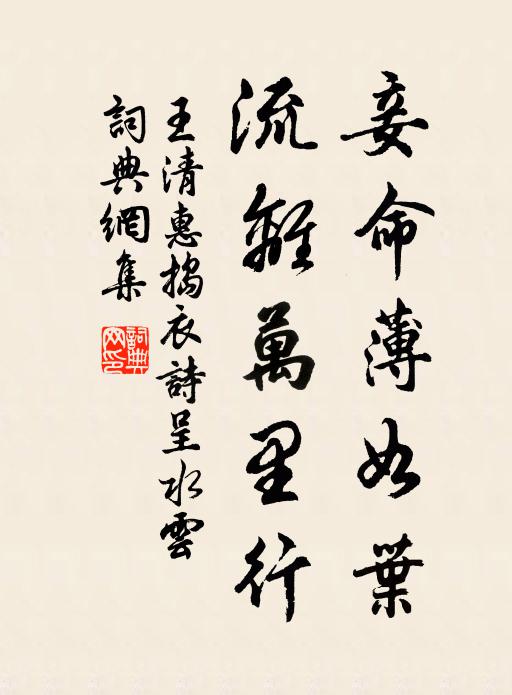 妾命薄如葉
流離萬里行
王清惠搗衣詩呈水雲
詞典網集
詞典網印